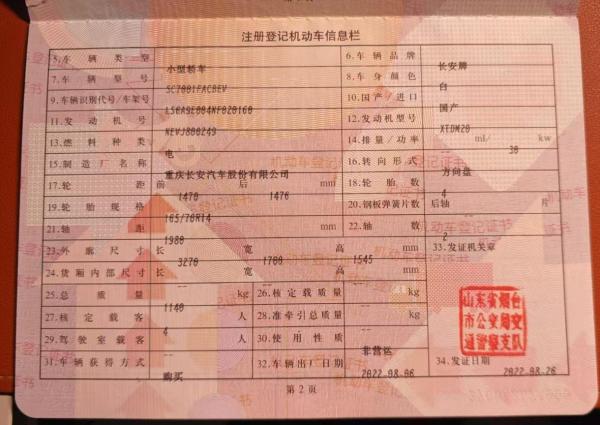 注册登记机动车信息栏
5.车辆类型 小型轿车 6.车辆品牌 长安牌
7.车辆型号 SC7001FACBEV 8.车身颜色 白
9.车辆识别代号/车架号 10.国产/进口 国产
11.发动机号 NEVJ800249 12.发动机型号 XTDM20
13.燃料种类 电 14.排量/功率 ml/ 30 kw
15.制造厂名称 重庆长安汽车股份有限公司 16.转向形式 方向盘
17.轮距 前 1470 后 1476 mm 18.轮胎数 4
19.轮胎规格 165/70R14 20.钢板弹簧片数 后轴 -- 片
21.轴距 1980 mm 22.轴数 2
23.外廓尺寸 长 3270 宽 1700 高 1545 mm 33.发证机关章
24.货厢内部尺寸 长 -- 宽 -- 高 -- mm
25.总质量 1140 kg 26.核定载质量 -- kg
27.核定载客 4 人 28.准牵引总质量 -- kg
29.驾驶室载客 -- 人 30.使用性质 非营运
31.车辆获得方式 购买 32.车辆出厂日期 2022-08-06 34.发证日期 2022-08-26
山东省烟台
市公安局交
通警察支队
第2页